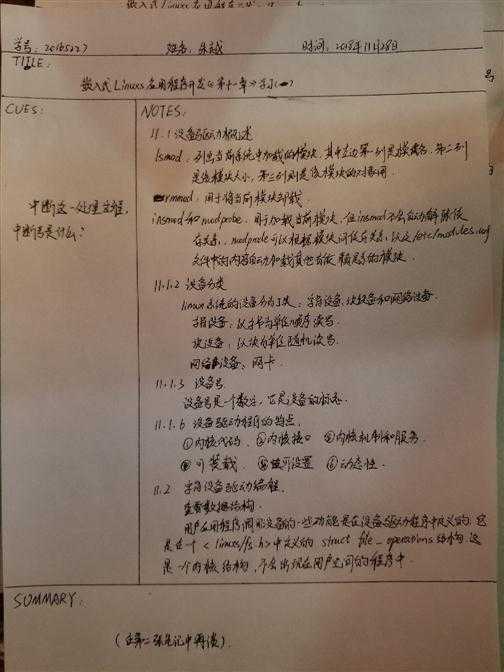 学号: 20165227 姓名: 朱越 时间: 2018年11月28日
TITLE:
嵌入式Linuxs应用程序开发《第十一章》学习(一)
CUES:
中断这一处理主程,
中断号是什么?
NOTES:
11.1 设备驱动概述
lsmod, 列出当前系统中加载的模块, 其中左边第一列是模块名, 第二列
是该模块大小, 第三列则是该模块的对象用.
rmmod, 用于将当前模块卸载.
insmod 和 modprobe, 用于加载当前模块, 但insmod不会自动解决依
存关系, modprobe可以根据模块间依存关系, 以及/etc/modules.conf
文件中的内容自动加载其他有依赖关系的模块.
11.1.2 设备分类
linux系统的设备分为3类: 字符设备, 块设备和网络设备.
字符设备: 以字节为单位顺序读写.
块设备: 以块为单位随机读写.
网络设备: 网卡.
11.1.3 设备号
设备号是一个数字, 它是设备的标志.
11.1.6 设备驱动程序的特点.
①内核代码. ②内核接口 ③内核机制和服务.
④可装载. ⑤可设置 ⑥动态性.
11.2 字符设备驱动编程.
重要数据结构.
用户应用程序调用设备的一些功能是在设备驱动程序中定义的, 它
是在一个<linuxs/fs.h>中定义的 struct file_operations 结构. 这
是一个内核结构, 不会出现在用户空间的程序中.
SUMMARY:
(在第二张笔记中再读).